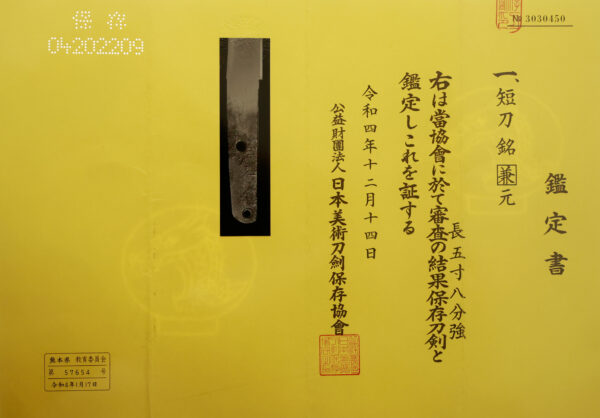 保存
04202209
№ 3030450
鑑定書
一、短刀 銘 兼元
長五寸八分強
右は當協會に於て審査の結果保存刀剣と
鑑定しこれを証する
令和四年十二月十四日
公益財團法人 日本美術刀劍保存協會
熊本県 教育委員会
第 57654 号
令和5年1月17日